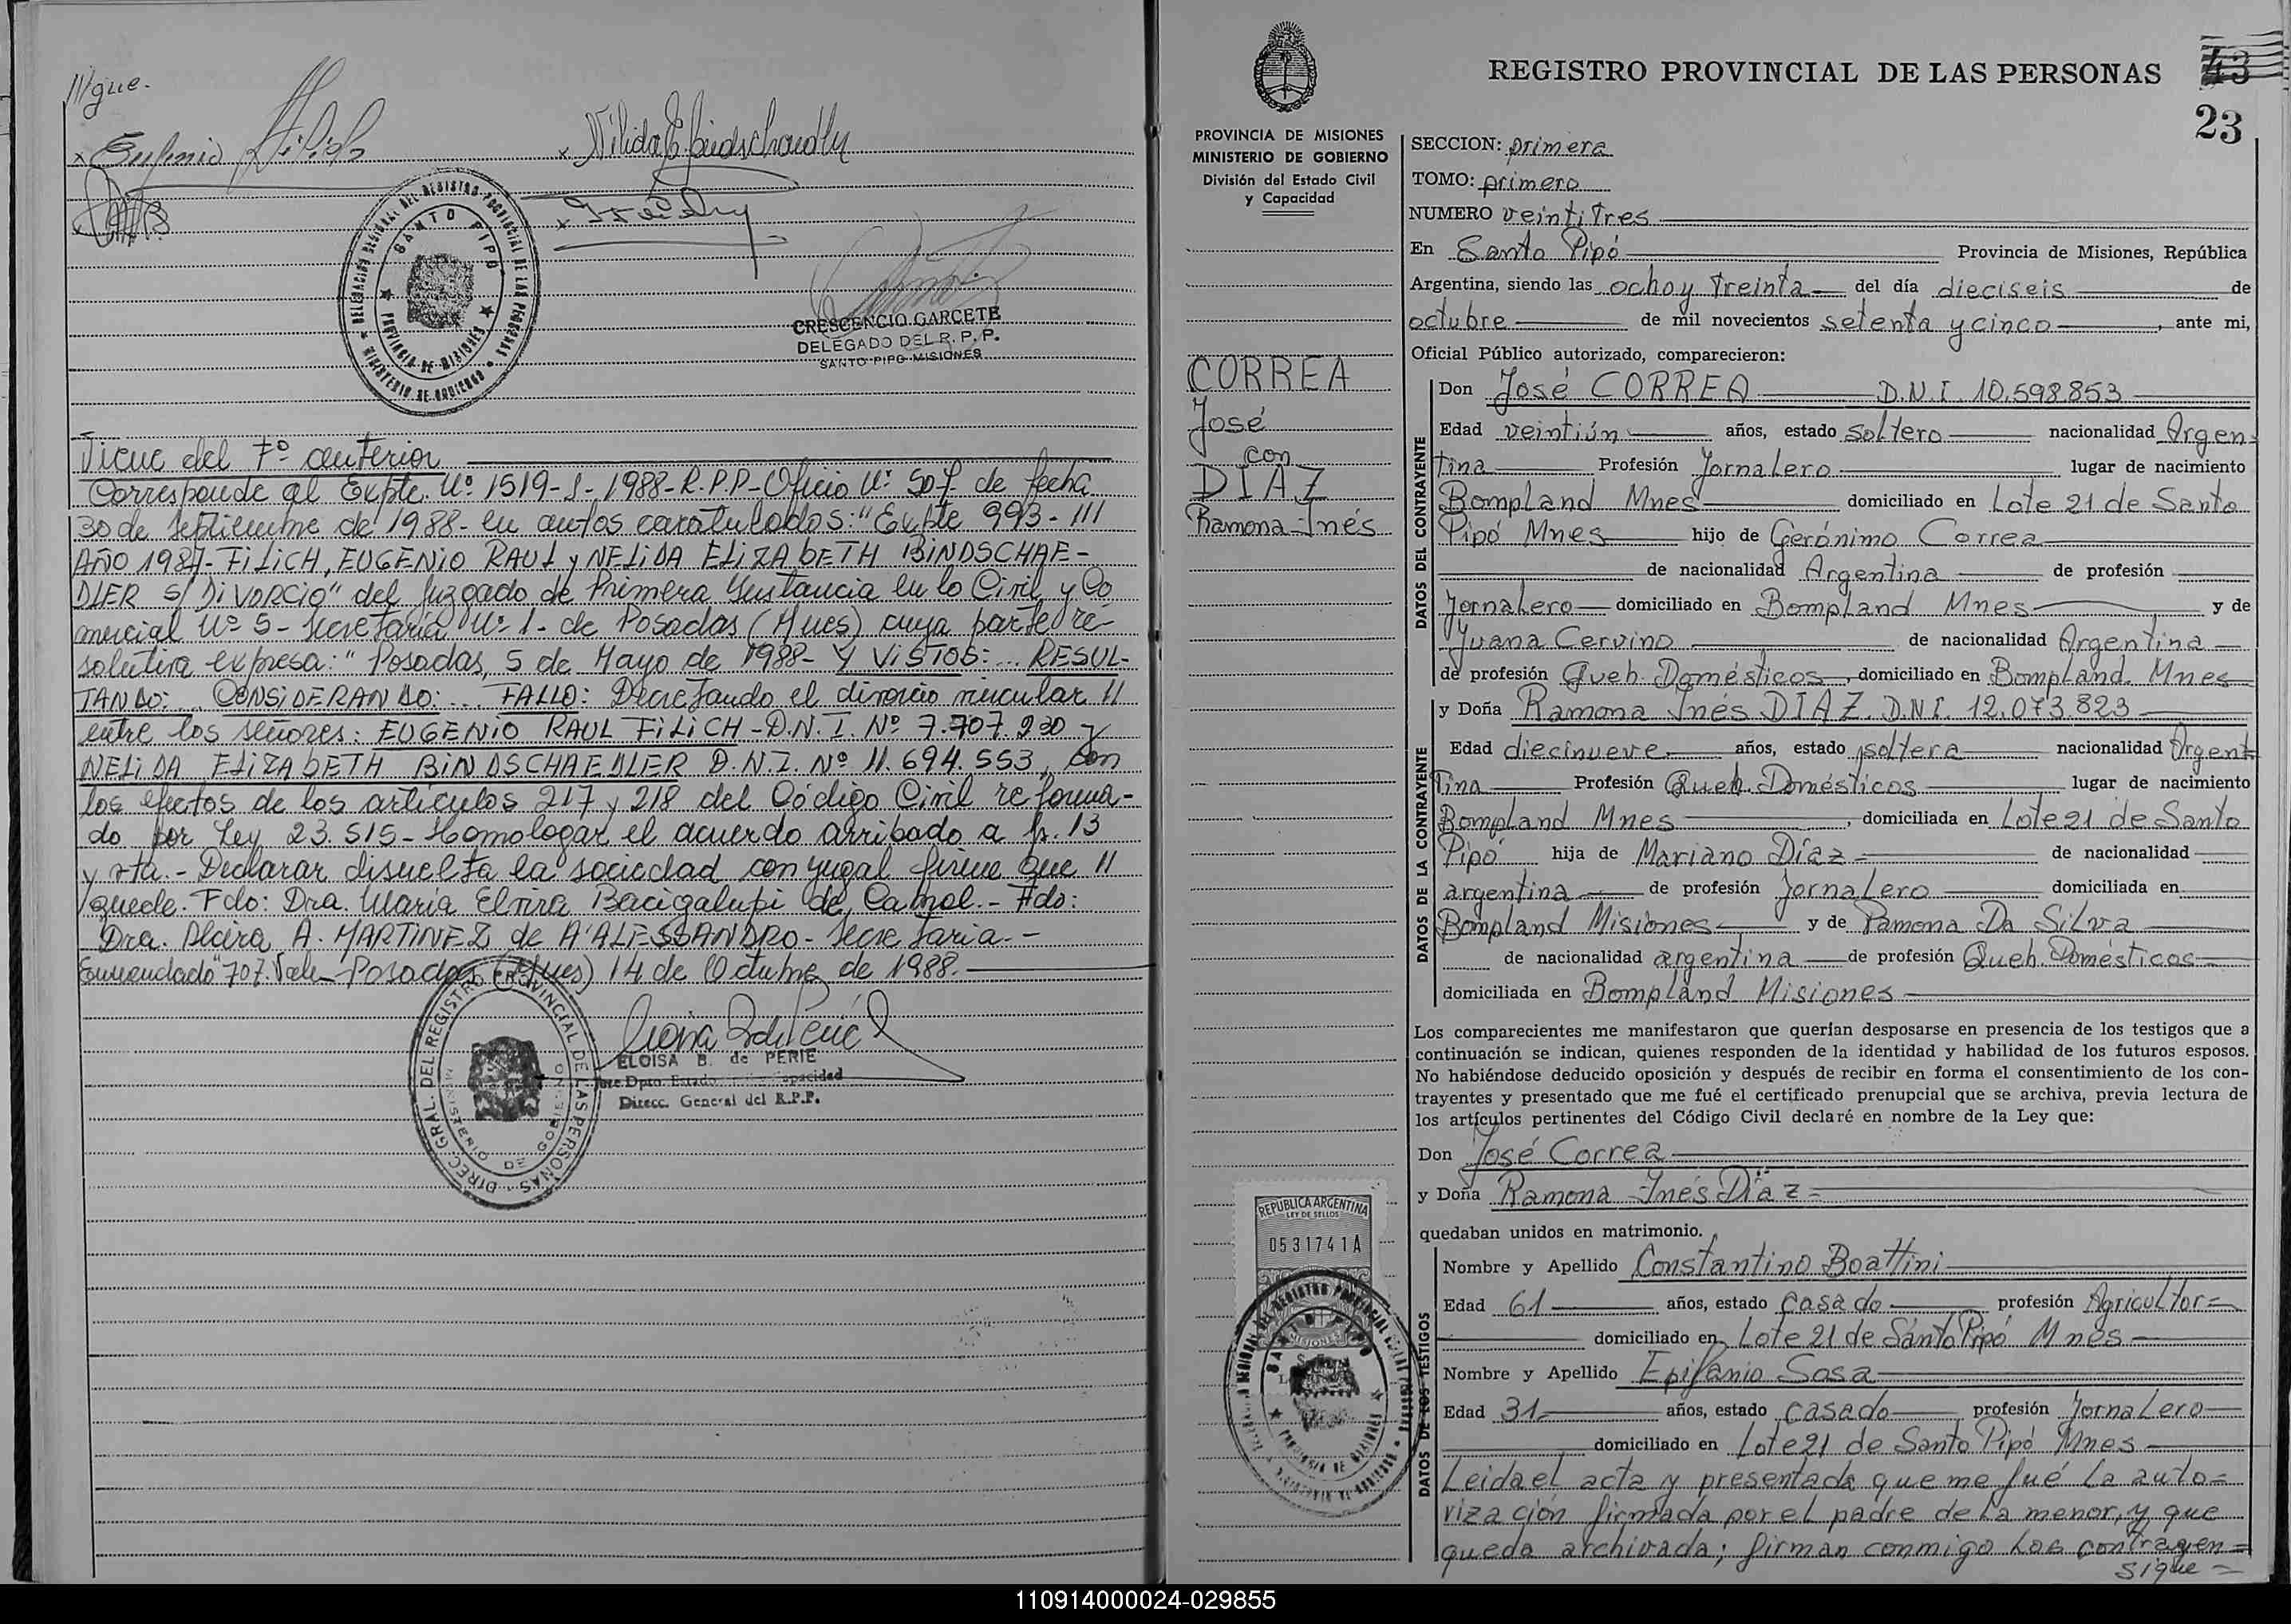 ///gue.
x Eugenio Filich
x Nélida E. Bindschaedler
DELEGACION REGIONAL DEL REGISTRO PROVINCIAL DE LAS PERSONAS
SANTO PIPO
PROVINCIA DE MISIONES
MINISTERIO DE GOBIERNO
CRESCENCIO GARCETE
DELEGADO DEL R. P. P.
SANTO PIPO-MISIONES
Viene del Fº anterior
Corresponde al Expte. Nº 1519-S-1988-R.P.P-Oficio Nº 507 de fecha
30 de septiembre de 1988- en autos caratulados: "Expte 993-///
AÑO 1987- FiLiCH, EUGENiO RAUL y NELiDA ELIZAbETH BiNDSCHAE-
DLER S/DiVORCiO" del Juzgado de Primera Instancia en lo Civil y Co
mercial Nº 5- Secretaría Nº 1- de Posadas (Mnes) cuya parte re-
solutiva expresa: "Posadas, 5 de Mayo de 1988- Y ViSTOS: ... RESUL-
TANDO: ... CONSiDERANDO: ... FALLO: Decretando el divorcio vincular //
entre los señores: EUGENiO RAUL FiLiCH-D.N.I. Nº 7.707.930 y
NELiDA ELIZAbETH BiNDSCHAEDLER D.N.I. Nº 11.694.553, con
los efectos de los artículos 217 y 218 del Código Civil reforma-
do por Ley 23.515- Homologar el acuerdo arribado a fs. 13
y vta.- Declarar disuelta la sociedad conyugal firme que //
quede. Fdo: Dra. María Elvira Bacigalupi de Cabral.- Fdo:
Dra. Alcira A. MARTINEZ de D'ALESSANDRO- Secretaria.-
Enmendado "707. Vale- Posadas (Mnes) 14 de Octubre de 1988.
DIREC. GRAL. DEL REGISTRO PROVINCIAL DE LAS PERSONAS
MINISTERIO DE GOBIERNO
ELOISA B. de PERIE
Jefe Dpto. Estado Civil y Capacidad
Direcc. General del R.P.P.
REGISTRO PROVINCIAL DE LAS PERSONAS
43
23
PROVINCIA DE MISIONES
MINISTERIO DE GOBIERNO
División del Estado Civil
y Capacidad
CORREA
José
con
DIAZ
Ramona Inés
REPUBLICA ARGENTINA
LEY DE SELLOS
0531741A
DELEGACION REGIONAL DEL REGISTRO PROVINCIAL DE LAS PERSONAS
SANTO PIPO
PROVINCIA DE MISIONES
SECCION: primera
TOMO: primero
NUMERO veintitres
En Santo Pipó Provincia de Misiones, República
Argentina, siendo las ocho y treinta del día dieciseis de
octubre de mil novecientos setenta y cinco, ante mi,
Oficial Público autorizado, comparecieron:
DATOS DEL CONTRAYENTE
Don José CORREA D.N.I. 10.598.853
Edad veintiún años, estado soltero nacionalidad Argen-
tina Profesión Jornalero lugar de nacimiento
Bompland Mnes domiciliado en Lote 21 de Santo
Pipó Mnes hijo de Gerónimo Correa
de nacionalidad Argentina de profesión
Jornalero domiciliado en Bompland Mnes y de
Juana Cervino de nacionalidad Argentina
de profesión Queh. Domésticos, domiciliado en Bompland. Mnes
DATOS DE LA CONTRAYENTE
y Doña Ramona Inés DIAZ. D.N.I. 12.073.823
Edad diecinueve años, estado soltera nacionalidad Argen-
tina Profesión Queh. Domésticos lugar de nacimiento
Bompland Mnes, domiciliada en Lote 21 de Santo
Pipó hija de Mariano Díaz de nacionalidad
argentina de profesión Jornalero domiciliada en
Bompland Misiones y de Ramona Da Silva
de nacionalidad argentina de profesión Queh. Domésticos
domiciliada en Bompland Misiones
Los comparecientes me manifestaron que querían desposarse en presencia de los testigos que a
continuación se indican, quienes responden de la identidad y habilidad de los futuros esposos.
No habiéndose deducido oposición y después de recibir en forma el consentimiento de los con-
trayentes y presentado que me fué el certificado prenupcial que se archiva, previa lectura de
los artículos pertinentes del Código Civil declaré en nombre de la Ley que:
Don José Correa
y Doña Ramona Inés Díaz
quedaban unidos en matrimonio.
DATOS DE LOS TESTIGOS
Nombre y Apellido Constantino Boattini
Edad 61 años, estado casado profesión Agricultor
domiciliado en Lote 21 de Santo Pipó Mnes
Nombre y Apellido Epifanio Sosa
Edad 31 años, estado casado profesión Jornalero
domiciliado en Lote 21 de Santo Pipó Mnes
Leida el acta y presentada que me fué la auto=
rización firmada por el padre de la menor, y que
queda archivada; firman conmigo los contrayen=
sigue=
110914000024-029855